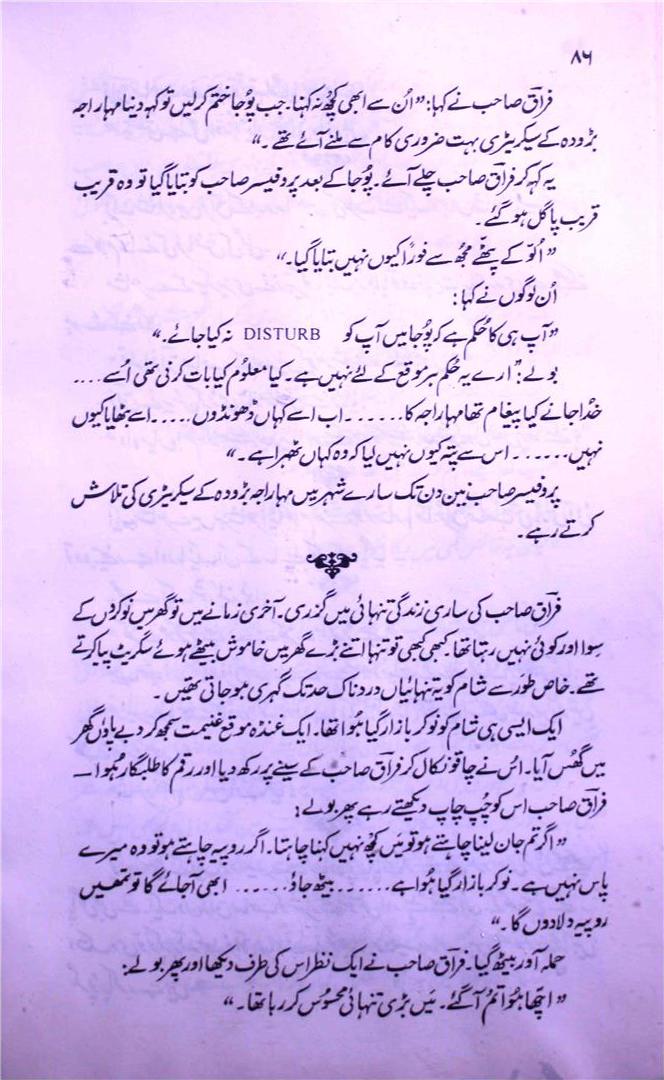 ۸۶
فراقؔ صاحب نے کہا: ”اُن سے ابھی کچھ نہ کہنا۔ جب پُوجا ختم کرلیں تو کہہ دینا مہاراجہ
بڑودہ کے سیکریٹری بہت ضروری کام سے ملنے آئے تھے۔“
یہ کہہ کر فراقؔ صاحب چلے آئے۔ پُوجا کے بعد پروفیسر صاحب کو بتایا گیا تو وہ قریب
قریب پاگل ہوگئے۔
”اُلّو کے پٹھے مجھ سے فوراً کیوں نہیں بتایا گیا۔“
اُن لوگوں نے کہا:
”آپ ہی کا حُکم ہے کہ پُوجا میں آپ کو DISTURB نہ کیا جائے۔“
بولے: ”ارے یہ حُکم ہر موقع کے لئے نہیں ہے۔ کیا معلُوم کیا بات کرنی تھی اُسے ....
خُدا جانے کیا پیغام تھا مہاراجہ کا ...... اب اسے کہاں ڈھونڈوں ..... اسے بٹھایا کیوں
نہیں ...... اس سے پتہ کیوں نہیں لیا کہ وہ کہاں ٹھہرا ہے۔“
پروفیسر صاحب تین دن تک سارے شہر میں مہاراجہ بڑودہ کے سیکریٹری کی تلاش
کرتے رہے۔
فراقؔ صاحب کی ساری زندگی تنہائی میں گزری۔ آخری زمانے میں تو گھر میں نوکروں کے
سِوا اور کوئی نہیں رہتا تھا۔ کبھی کبھی تو تنہا اتنے بڑے گھر میں خاموش بیٹھے ہوئے سگریٹ پیا کرتے
تھے۔ خاص طور سے شام کو یہ تنہائیاں دردناک حد تک گہری ہوجاتی تھیں۔
ایک ایسی ہی شام کو نوکر بازار گیا ہُوا تھا۔ ایک غنڈہ موقع غنیمت سمجھ کر دبے پاؤں گھر
میں گھُس آیا۔ اُس نے چاقو نکال کر فراقؔ صاحب کے سینے پر رکھ دیا اور رقم کا طلبگار ہُوا —
فراقؔ صاحب اس کو چُپ چاپ دیکھتے رہے پھر بولے:
”اگر تم جان لینا چاہتے ہو تو میں کچھ نہیں کہنا چاہتا۔ اگر روپیہ چاہتے ہو تو وہ میرے
پاس نہیں ہے۔ نوکر بازار گیا ہُوا ہے ...... بیٹھ جاؤ ...... ابھی آجائے گا تو تمھیں
روپیہ دلا دوں گا۔“
حملہ آور بیٹھ گیا۔ فراقؔ صاحب نے ایک نظر اس کی طرف دیکھا اور پھر بولے:
”اچھا ہُوا تم آگئے۔ میں بڑی تنہائی محسُوس کر رہا تھا۔“